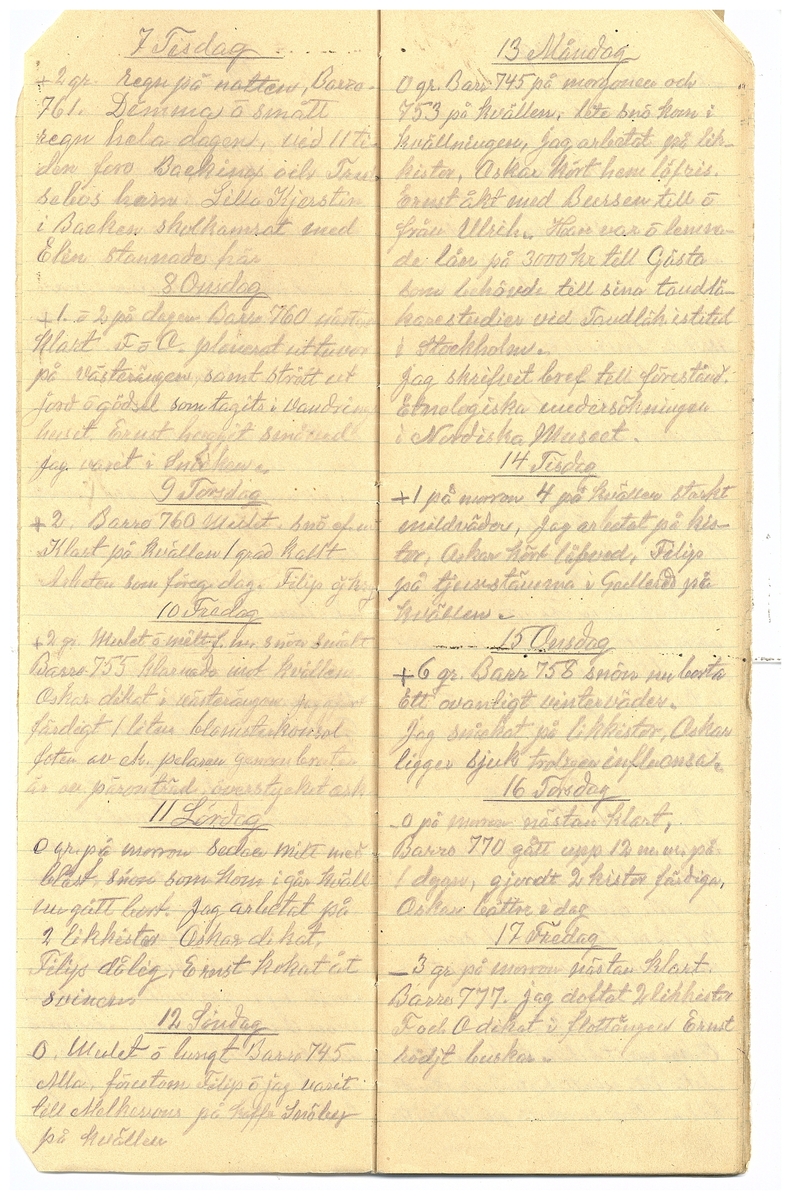 7 Tisdag
+2 gr. regn på natten, Barro-
761. Dimma ö smått
regn hela dagen, vid 11 ti-
den foro Backing och Tru
hem. Lilla Kjerstin
i Backen skolkamrat med
Elen stannade här
8 Onsdag
+1. ö 2 på dagen Barro 760 näst
klart F ö O. planerat ut tuvor
på västerängen samt strött ut
jord ö gödsel som tagits i
huset. Ernst huggit småved
jag varit i
9 Torsdag
+2. Barro 760 Mulet. Snö ef.m
Klart på kvällen 1 grad kallt
Arbeten som föreg. dag. Filip
10 Fredag
+2 gr. Mulet ö snön smält
Barro 755 klarnade mot kvällen
Oskar dikat i västerängen jag
färdigt 1 liten blomsterkonsol
foten av ek. pelaren
är av päronträd, överstycket ask
11 Lördag
0 gr. på morron sedan milt med
blåst. snön som kom i går kväll
nu gått bort. Jag arbetat på
2 likkistor Oskar dikat,
Filip dålig, Ernst kokat åt
svinen
12 Söndag
0. Mulet ö lungt Barro 745
Alla, förutom Filip ö jag varit
till på kaffe
på kvällen
13 Måndag
0 gr. Barr 745 på morgonen och
753 på kvällen, lite snö kom i
kvällningen, Jag arbetat på lik-
kistor, Oskar kört hem löfris.
Ernst åkt med Bussen till ö
från Ulrich. Han var ö lemna-
de lån på 3000 kr till Gösta
som behövde till sina tandlä-
karestudier vid Tandläkistitut
i Stockholm.
Jag skrifvit bref till föreständ.
Etnologiska undersökningen
i Nordiska Museet.
14 Tisdag
+1 på morron 4 på kvällen starkt
mildväder, Jag arbetat på kis-
tor, Oskar kört löfved, Filip
på tjurstämma i på
kvällen.
15 Onsdag
+6 gr. Barr 758 snön nu borta
Ett ovanligt vinterväder.
Jag snickat på likkistor, Oskar
ligger sjuk troligen influensa.
16 Torsdag
-0 på morron nästan klart,
Barro 770 gått upp 12 m.m. på
1 dygn, gjordt 2 kistor färdiga,
Oskar bättre i dag
17 Fredag
-3 gr på morron nästan klart.
Barro 777. jag 2 likkistor
F och O dikat i flottängen Ernst
rödjt buskar.